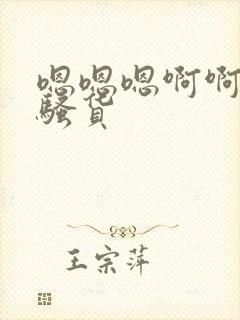 嗯嗯嗯啊啊
骚货
王宗萍